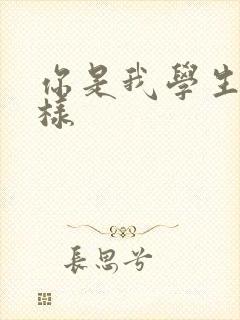 你是我學生
樣
長思兮